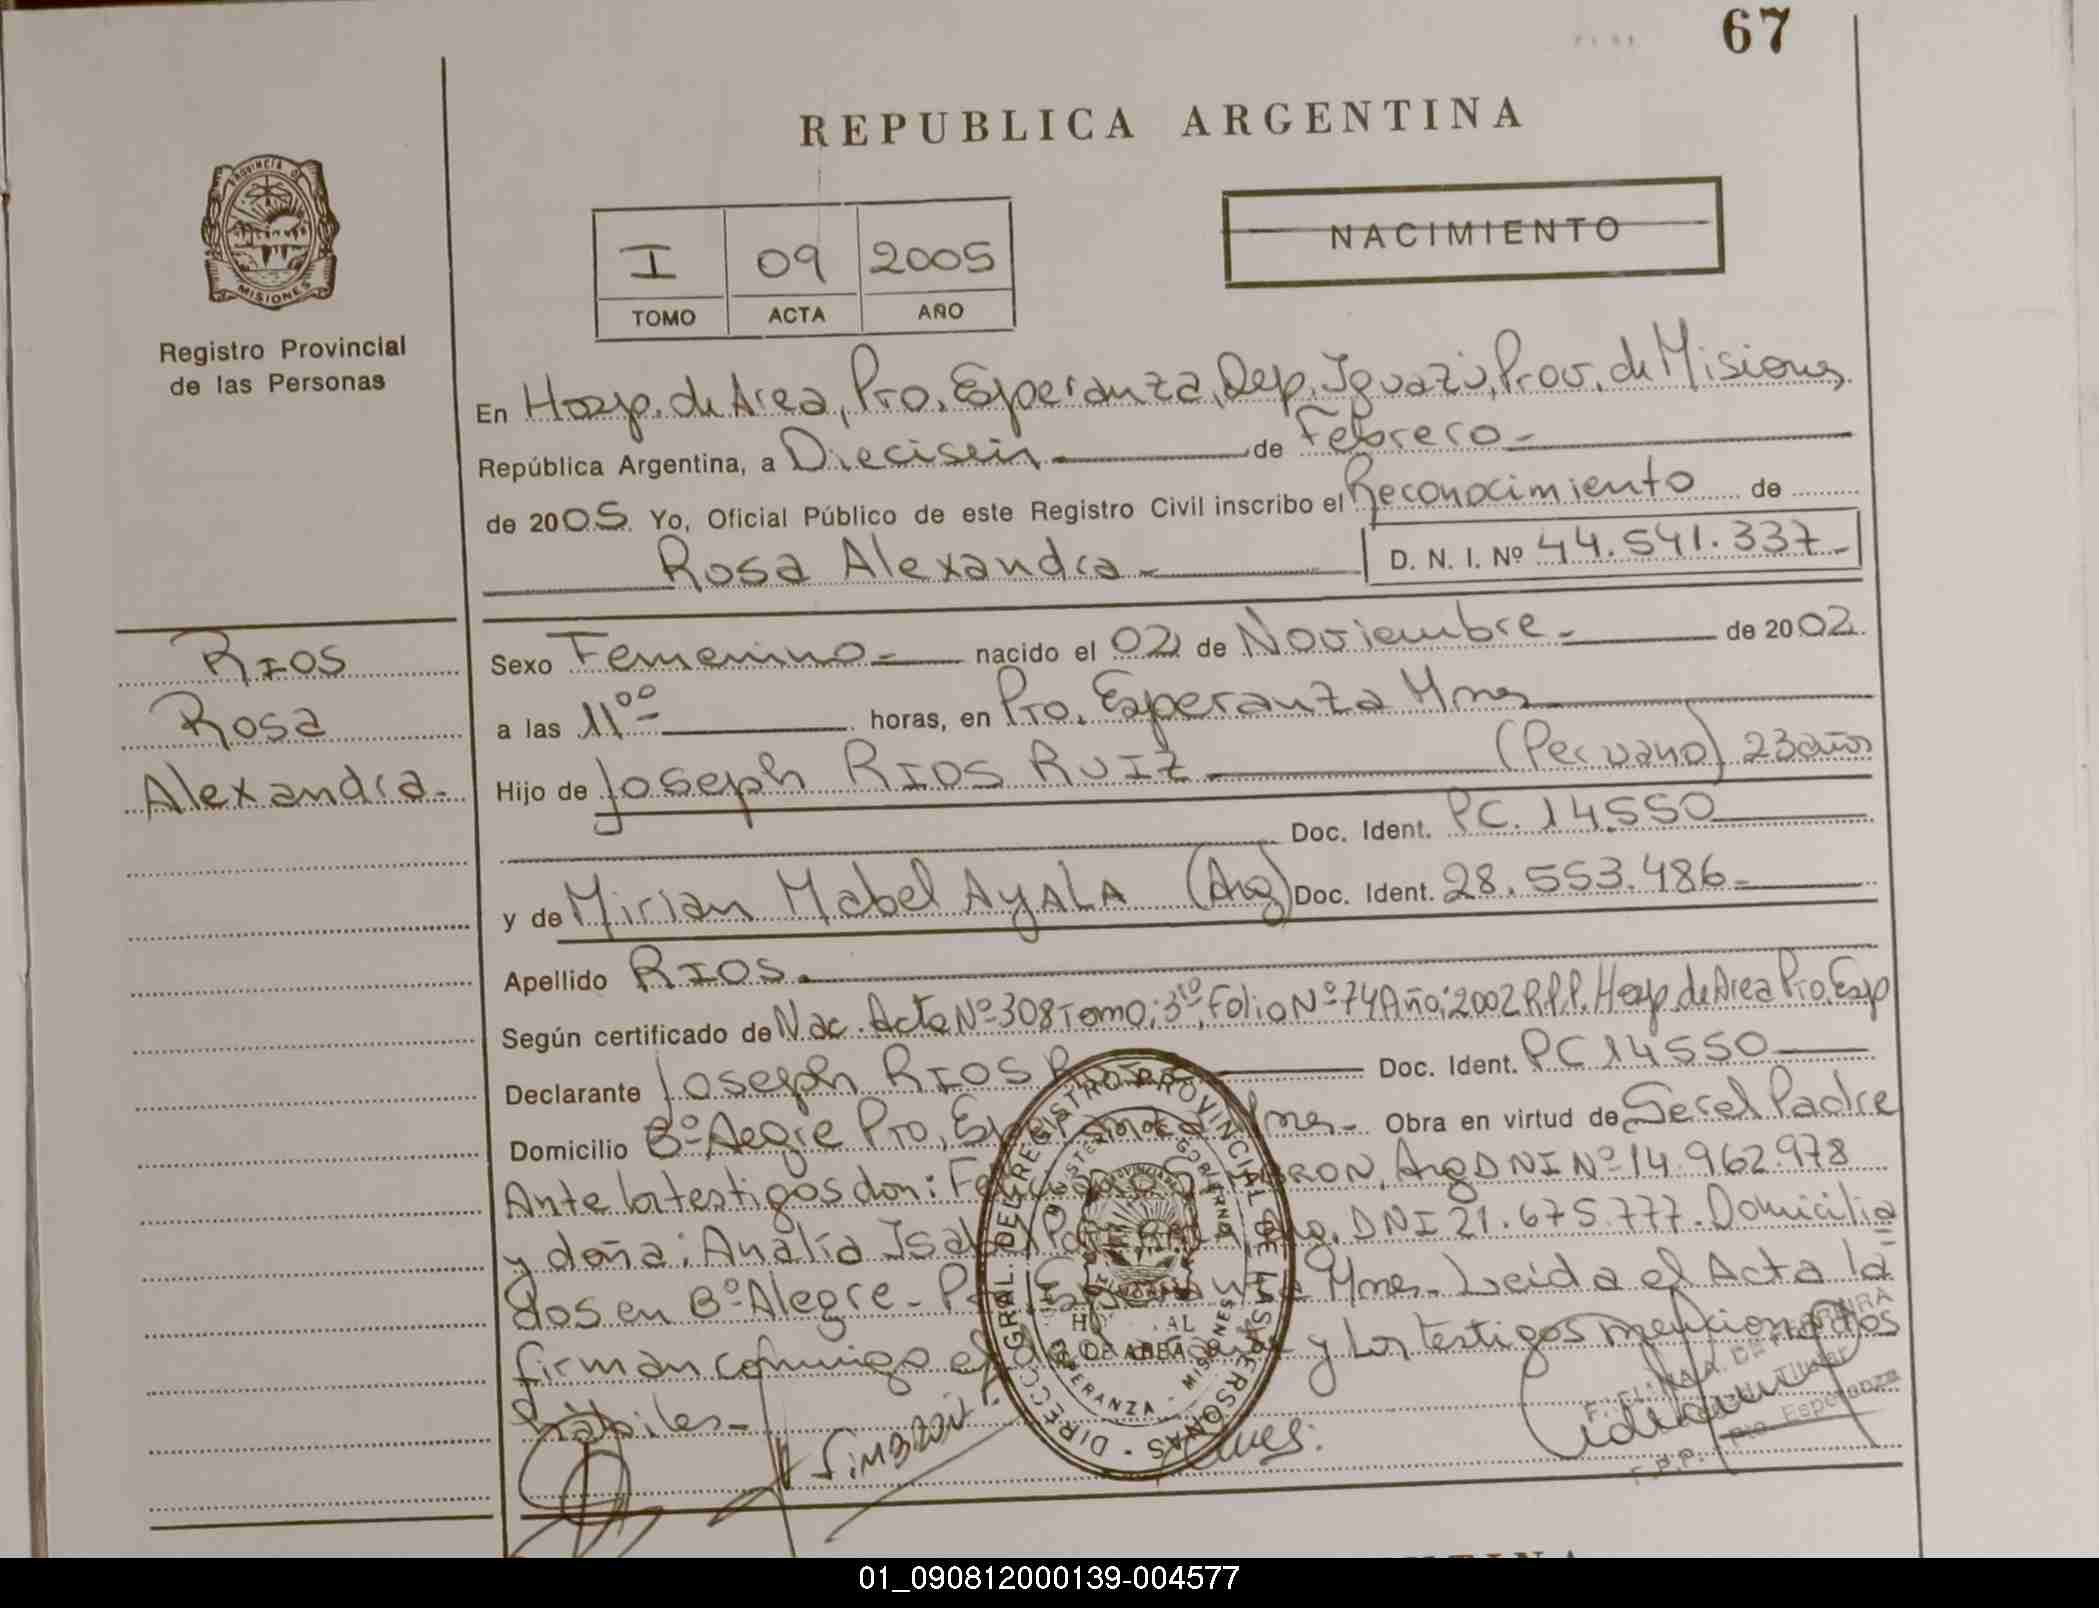 67
REPUBLICA ARGENTINA
PROVINCIA DE
MISIONES
Registro Provincial
de las Personas
I 09 2005
TOMO ACTA AÑO
NACIMIENTO
En Hosp. de Area, Pto. Esperanza, Dep. Iguazú, Prov. de Misiones
República Argentina, a Dieciseis de Febrero
de 2005. Yo, Oficial Público de este Registro Civil inscribo el Reconocimiento de
Rosa Alexandra D. N. I. Nº 44.541.337
RIOS
Rosa
Alexandra
Sexo Femenino nacido el 02 de Noviembre de 2002.
a las 11⁰⁰ horas, en Pto. Esperanza Mnes
Hijo de Joseph RIOS RUIZ (Peruano) 23 años
Doc. Ident. PC. 14.550
y de Mirian Mabel AYALA (Arg) Doc. Ident. 28.553.486
Apellido RIOS.
Según certificado de Nac. Acta Nº 308 Tomo: 3ro, Folio Nº 74 Año: 2002 R.P.P. Hosp. de Area Pto. Esp
Declarante Joseph RIOS Doc. Ident. PC 14550
Domicilio Bº Aegre Pto. Mnes Obra en virtud de Ser el Padre
Ante los testigos don: Arg DNI Nº 14.962.978
y doña: Analía DNI 21.675.777. Domicilia
dos en Bº Alegre - Mnes. Leida el Acta la
firman conmigo y los testigos mencionados
hábiles
DIRECC. GRAL. DEL REGISTRO PROVINCIAL DE LAS PERSONAS
DE AREA
ESPERANZA - MISIONES
Pto Esperanza
01_090812000139-004577